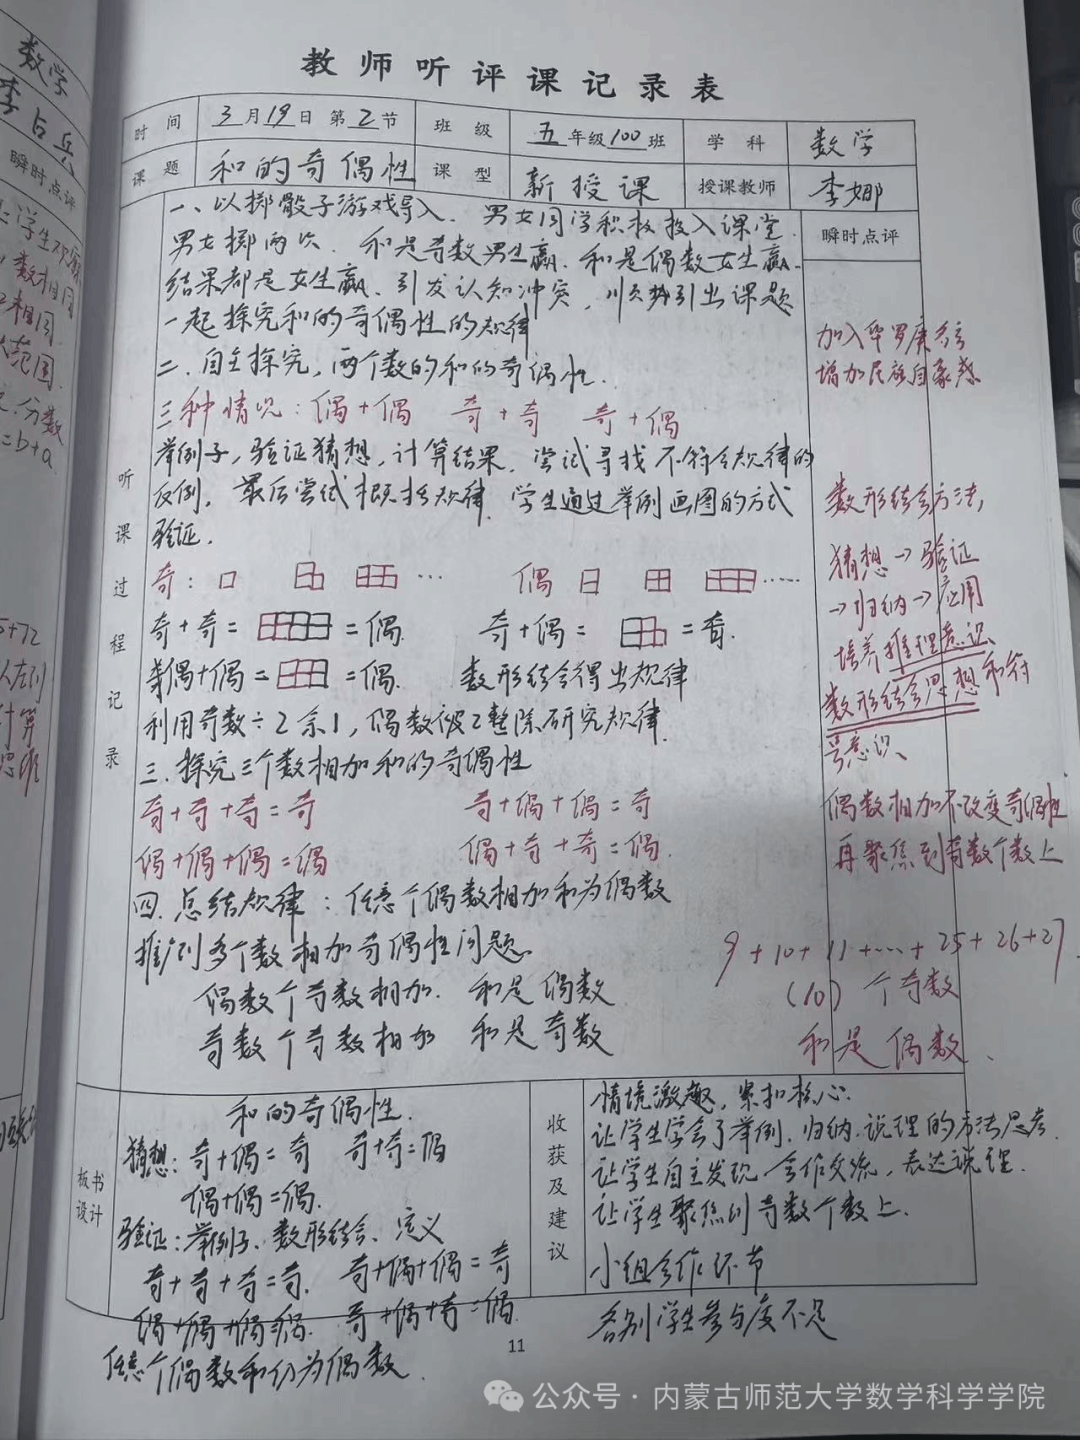 数学
李占兵
瞬时点评
教师听评课记录表
时间 3月19日 第2节 班级 五年级100班 学科 数学
课题 和的奇偶性 课型 新授课 授课教师 李娜
听课过程记录
一、以掷骰子游戏导入. 男女同学积极投入课堂.
男女掷两次. 和是奇数男生赢. 和是偶数女生赢.
结果都是女生赢. 引发认知冲突, 顺势引出课题
一起探究和的奇偶性的规律
二. 自主探究, 两个数的和的奇偶性.
三种情况: 偶+偶 奇+奇 奇+偶
举例子, 验证猜想, 计算结果. 尝试寻找不符合规律的
反例. 最后尝试概括规律. 学生通过举例画图的方式
验证.
奇: … 偶 ……
奇+奇= =偶. 奇+偶= =奇.
偶+偶= =偶. 数形结合得出规律
利用奇数÷2余1, 偶数被2整除研究规律.
三. 探究三个数相加和的奇偶性
奇+奇+奇=奇 奇+偶+偶=奇
偶+偶+偶=偶 偶+奇+奇=偶.
四. 总结规律: 任意个偶数相加和为偶数
推广到多个数相加奇偶性问题.
偶数个奇数相加. 和是偶数
奇数个奇数相加 和是奇数
瞬时点评
加入华罗庚名言
增加民族自豪感
数形结合方法,
猜想→验证
→归纳→应用
培养推理意识、
数形结合思想和符
号意识、
偶数相加不改变奇偶性
再聚焦到奇数个数上
9+10+11+…+25+26+27
(10) 个奇数
和是偶数.
板书设计
和的奇偶性.
猜想: 奇+偶=奇 奇+奇=偶
偶+偶=偶.
验证: 举例子、数形结合、定义
奇+奇+奇=奇. 奇+偶+偶=奇
偶+偶+偶=偶. 奇+偶+奇=偶.
任意个偶数和仍为偶数.
收获及建议
情境激趣, 紧扣核心.
让学生学会了举例、归纳、说理的方法思考.
让学生自主发现、合作交流, 表达说理.
让学生聚焦到奇数个数上.
小组合作环节
各别学生参与度不足
11
公众号·内蒙古师范大学数学科学学院